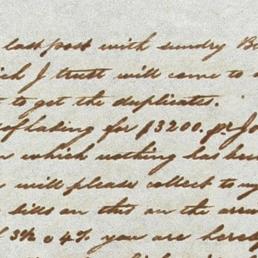 last post with sundry Bi
ich I trust will come to
t to get the duplicates.
of lading for $3200. pr Jo
n which nothing has been
u will please collect to my
bills on this on the arr
f 3½ o 4% you are hereby